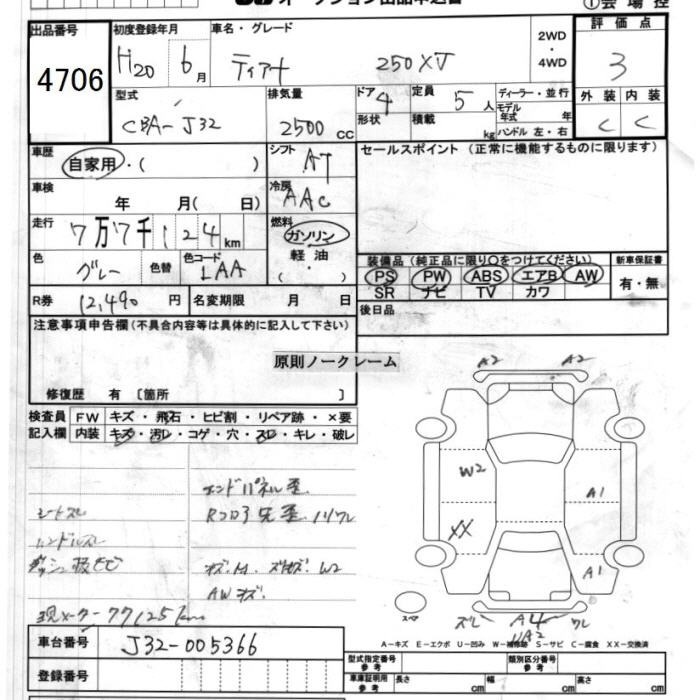 オークション出品申込書
①会場控
出品番号
4706
初度登録年月
H20 6月
車名・グレード
ティアナ 250XV
2WD
・
4WD
評価点
3
型式
CBA-J32
排気量
2500 CC
ドア 4
形状
定員 5人
積載 kg
ディーラー・並行
モデル年式 年
ハンドル 左・右
外装 内装
C C
車歴
自家用・( )
シフト AT
セールスポイント(正常に機能するものに限ります)
車検
年 月( 日)
冷房 AAC
走行
7万7千124km
燃料
ガソリン
軽油
・( )
色 グレー
色替
色コード LAA
装備品(純正品に限り○をつけてください)
新車保証書
PS PW ABS エアB AW
SR ナビ TV カワ
有・無
R券 12,490円
名変期限 月 日
後日品
注意事項申告欄(不具合内容等は具体的に記入して下さい)
原則ノークレーム
修復歴 有 〔箇所 〕
検査員記入欄
FW キズ・飛石・ヒビ割・リペア跡・×要
内装 キズ・汚レ・コゲ・穴・スレ・キレ・破レ
エンドパネル歪
シートスレ
ハンドルスレ
AWキズ
現メーター77125km
A2 A2
W2
A1
XX
A1
A4
スペア
A2
A-キズ E-エクボ U-凹み W-補修跡 S-サビ C-腐食 XX-交換済
車台番号
J32-005366
登録番号
型式指定番号 参考
類別区分番号 参考
車庫証明用 参考
長さ cm 幅 cm 高さ cm